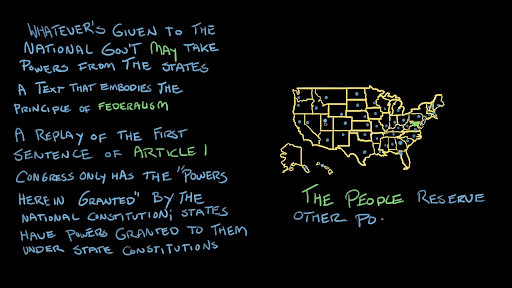 WHATEVER'S GIVEN TO THE
NATIONAL GOV'T MAY TAKE
POWERS FROM THE STATES
A TEXT THAT EMBODIES THE
PRINCIPLE OF FEDERALISM
A REPLAY OF THE FIRST
SENTENCE OF ARTICLE I
CONGRESS ONLY HAS THE "POWERS
HEREIN GRANTED" BY THE
NATIONAL CONSTITUTION; STATES
HAVE POWERS GRANTED TO THEM
UNDER STATE CONSTITUTIONS
THE PEOPLE RESERVE
OTHER PO